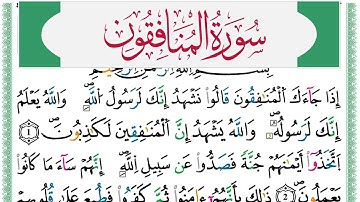 سُورَةُ المُنَافِقُون
بِسْمِ اللَّهِ الرَّحْمَٰنِ الرَّحِيمِ
إِذَا جَآءَكَ الْمُنَٰفِقُونَ قَالُوا۟ نَشْهَدُ إِنَّكَ لَرَسُولُ اللَّهِ ۗ وَاللَّهُ يَعْلَمُ
إِنَّكَ لَرَسُولُهُۥ وَاللَّهُ يَشْهَدُ إِنَّ الْمُنَٰفِقِينَ لَكَٰذِبُونَ ١
اتَّخَذُوٓا۟ أَيْمَٰنَهُمْ جُنَّةً فَصَدُّوا۟ عَن سَبِيلِ اللَّهِ ۚ إِنَّهُمْ سَآءَ مَا كَانُوا۟
يَعْمَلُونَ ٢ ذَٰلِكَ بِأَنَّهُمْ ءَامَنُوا۟ ثُمَّ كَفَرُوا۟ فَطُبِعَ عَلَىٰ قُلُوبِهِمْ